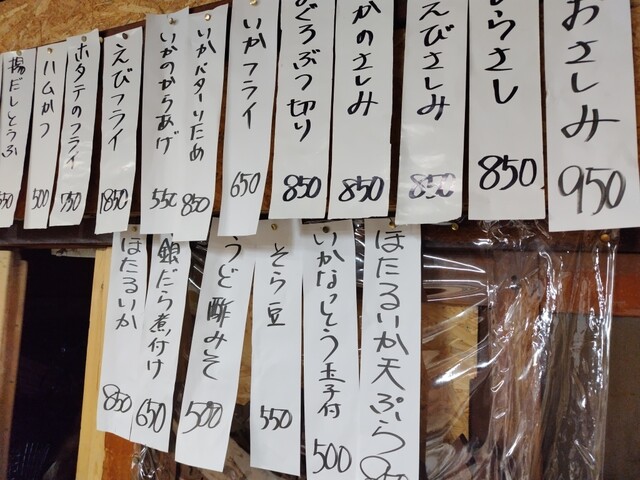 おさしみ
950
しらさし
850
えびさしみ
850
かのさしみ
850
ぐろぶつ切り
850
いかフライ
650
いかバターいため
850
いかのからあげ
550
えびフライ
1850
ホタテのフライ
750
ハムかつ
500
揚だしとうふ
550
ほたるいか天ぷら
いかなっとう玉子付
500
そら豆
550
うど酢みそ
500
銀だら煮付け
650
ほたるいか
850